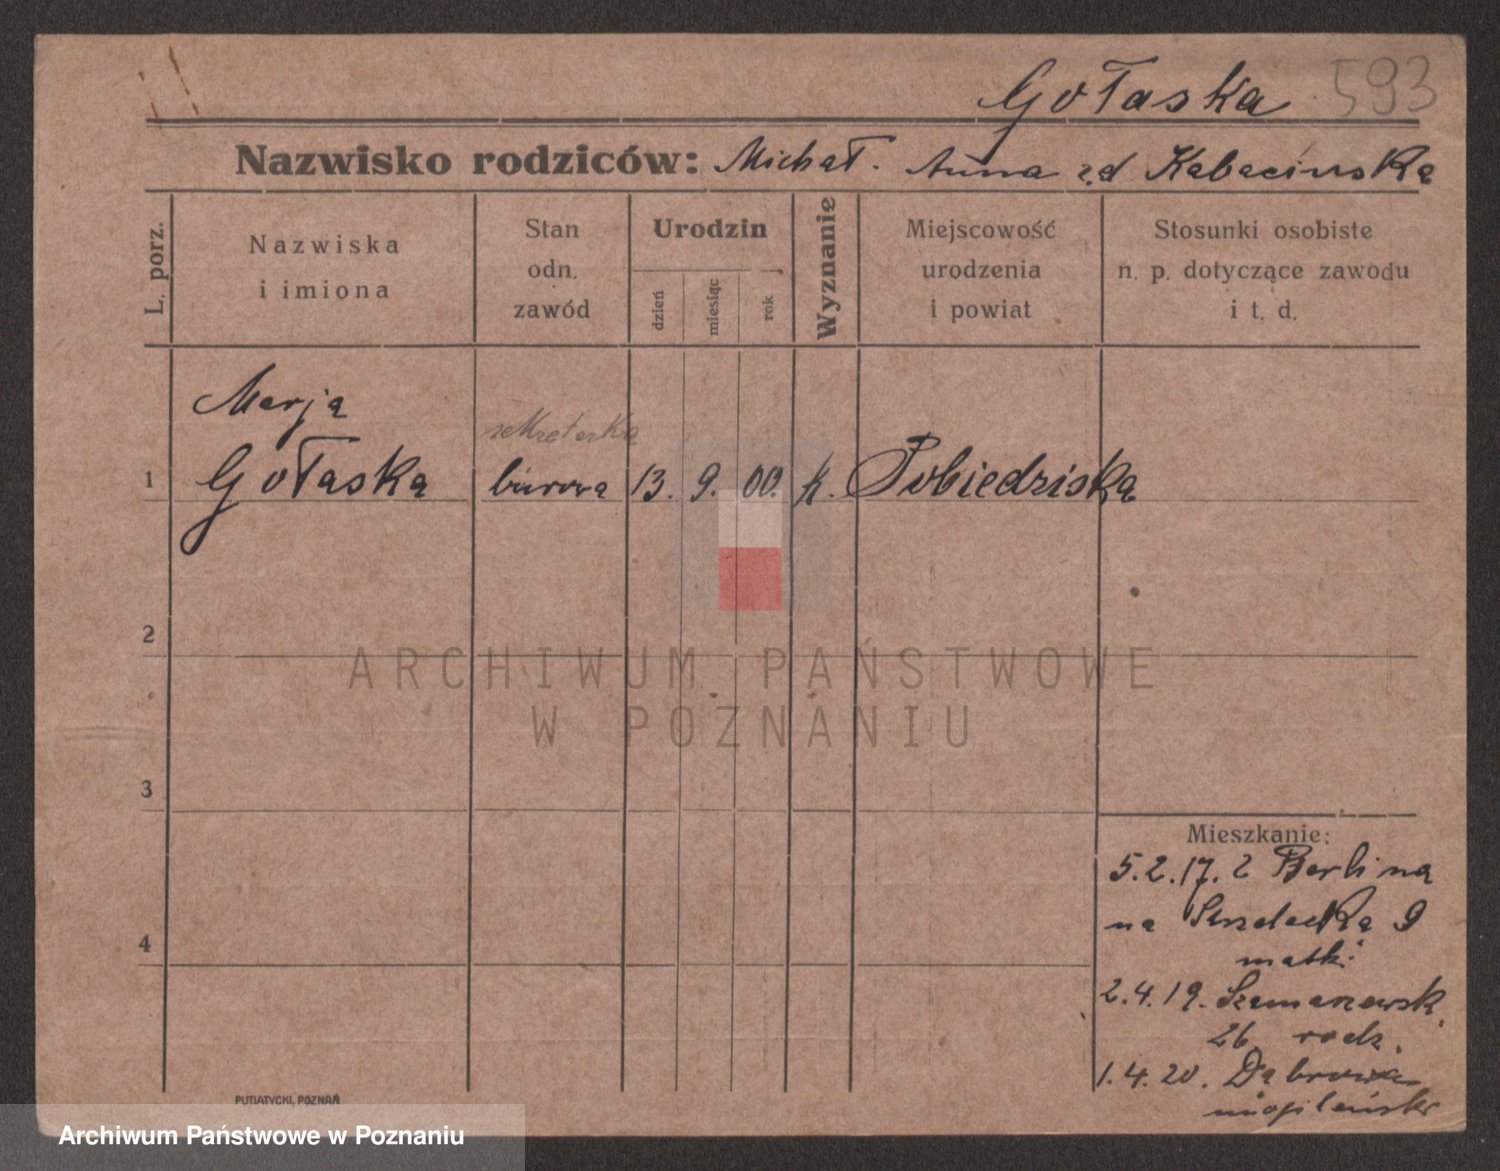 Gołaska 593
Nazwisko rodziców: Michał. Anna z d Kabacińska
L. porz.
Nazwiska
i imiona
Stan
odn.
zawód
Urodzin
dzień
miesiąc
rok
Wyznanie
Miejscowość
urodzenia
i powiat
Stosunki osobiste
n. p. dotyczące zawodu
i t. d.
Marja
sekretarka
1 Gołaska biurowa 13. 9. 00. k. Pobiedziska
2
ARCHIWUM PAŃSTWOWE
W POZNANIU
3
Mieszkanie:
5.2.17. z Berlina
na 9
4
matki
2.4.19. Szamarzewsk.
26. rodz.
1.4.20. Dąbrowa
mogileńsk
PUTIATYCKI, POZNAŃ
Archiwum Państwowe w Poznaniu